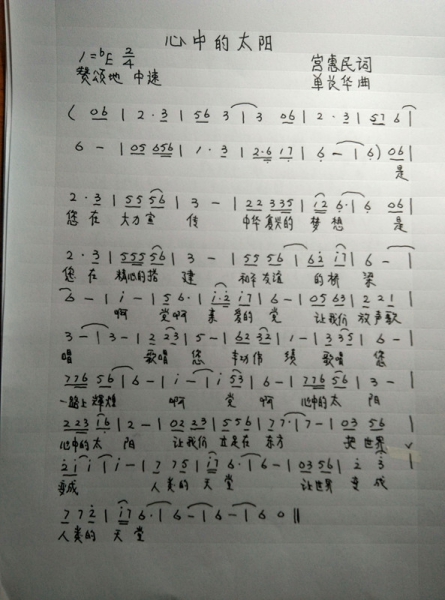 心中的太阳
1=♭E 2/4
宫惠民词
赞颂地 中速
单长华曲
( 06 | 2 · 3 | 56 3 | 3 06 | 2 · 3 | 57 6 |
6 - | 05 656 | 1 · 3 | 2·6 17 | 6 - | 6 ) 06 |
是
2 · 3 | 55 56 | 3 - | 22 335 | 12 6 · | 6 06 |
您在 大力宣 传 中华 的 梦想 是
2 · 3 | 555 56 | 3 - | 55 56 | 62 17 | 6 - |
您在 精心的搭 建 和平友谊 的桥 梁
6 - | i - | 56 · | i·2 i7 | 6 - | 05 63 | 2 21 |
啊 党啊 亲爱的 党 让我们 放声歌
3 - | 3 - | 2 23 | 5 - | 62 32 | 1 - | 335 | 6 - |
唱 歌唱 您 丰功伟 绩 歌唱 您
776 56 | 6 - | i - | i 53 | 6 - | 776 56 | 3 - |
一路上辉煌 啊 党 啊 心中的太 阳
223 16 | 2 - | 02 23 | 55 56 | 7 · | 7 - | 03 56 |
心中的太 阳 让我们 在 东方 把世界
2 i | i - | 7 75 | i7 6 · | 6 - | 03 56 | 2 3 |
变成 人类的 天堂 让世界 变成
7 72 | i7 6 · | 6 - | 6 - | 6 0 ‖
人类的 天堂